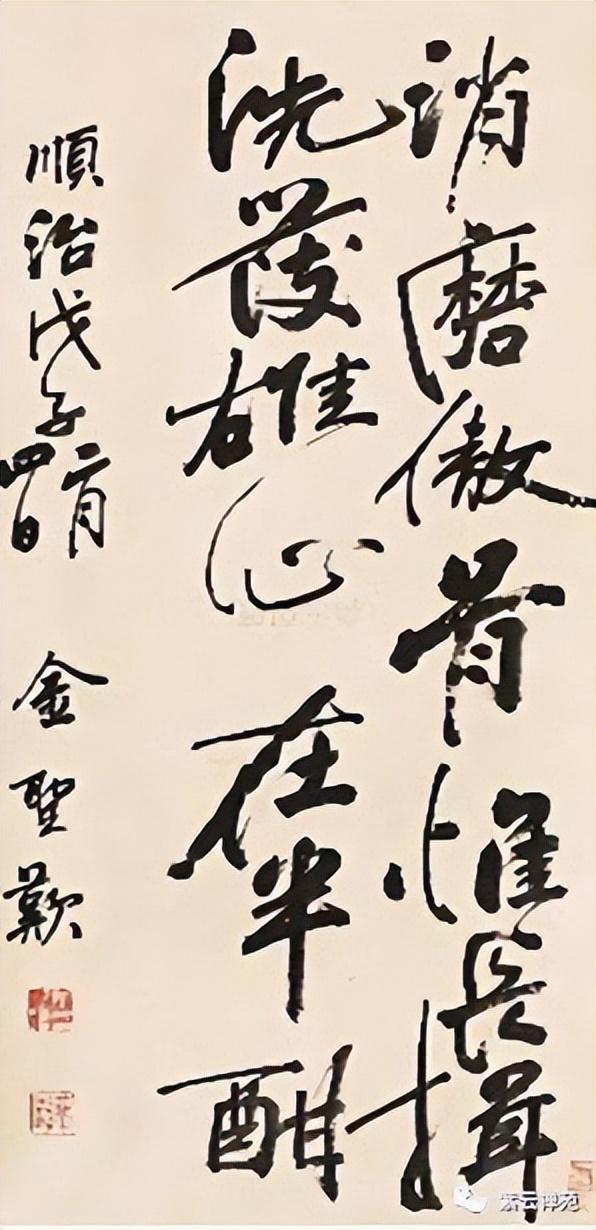 消磨傲骨惟長揖
洗發雄心在半酣
順治戊子二月
四日
金聖歎
紫云禅苑